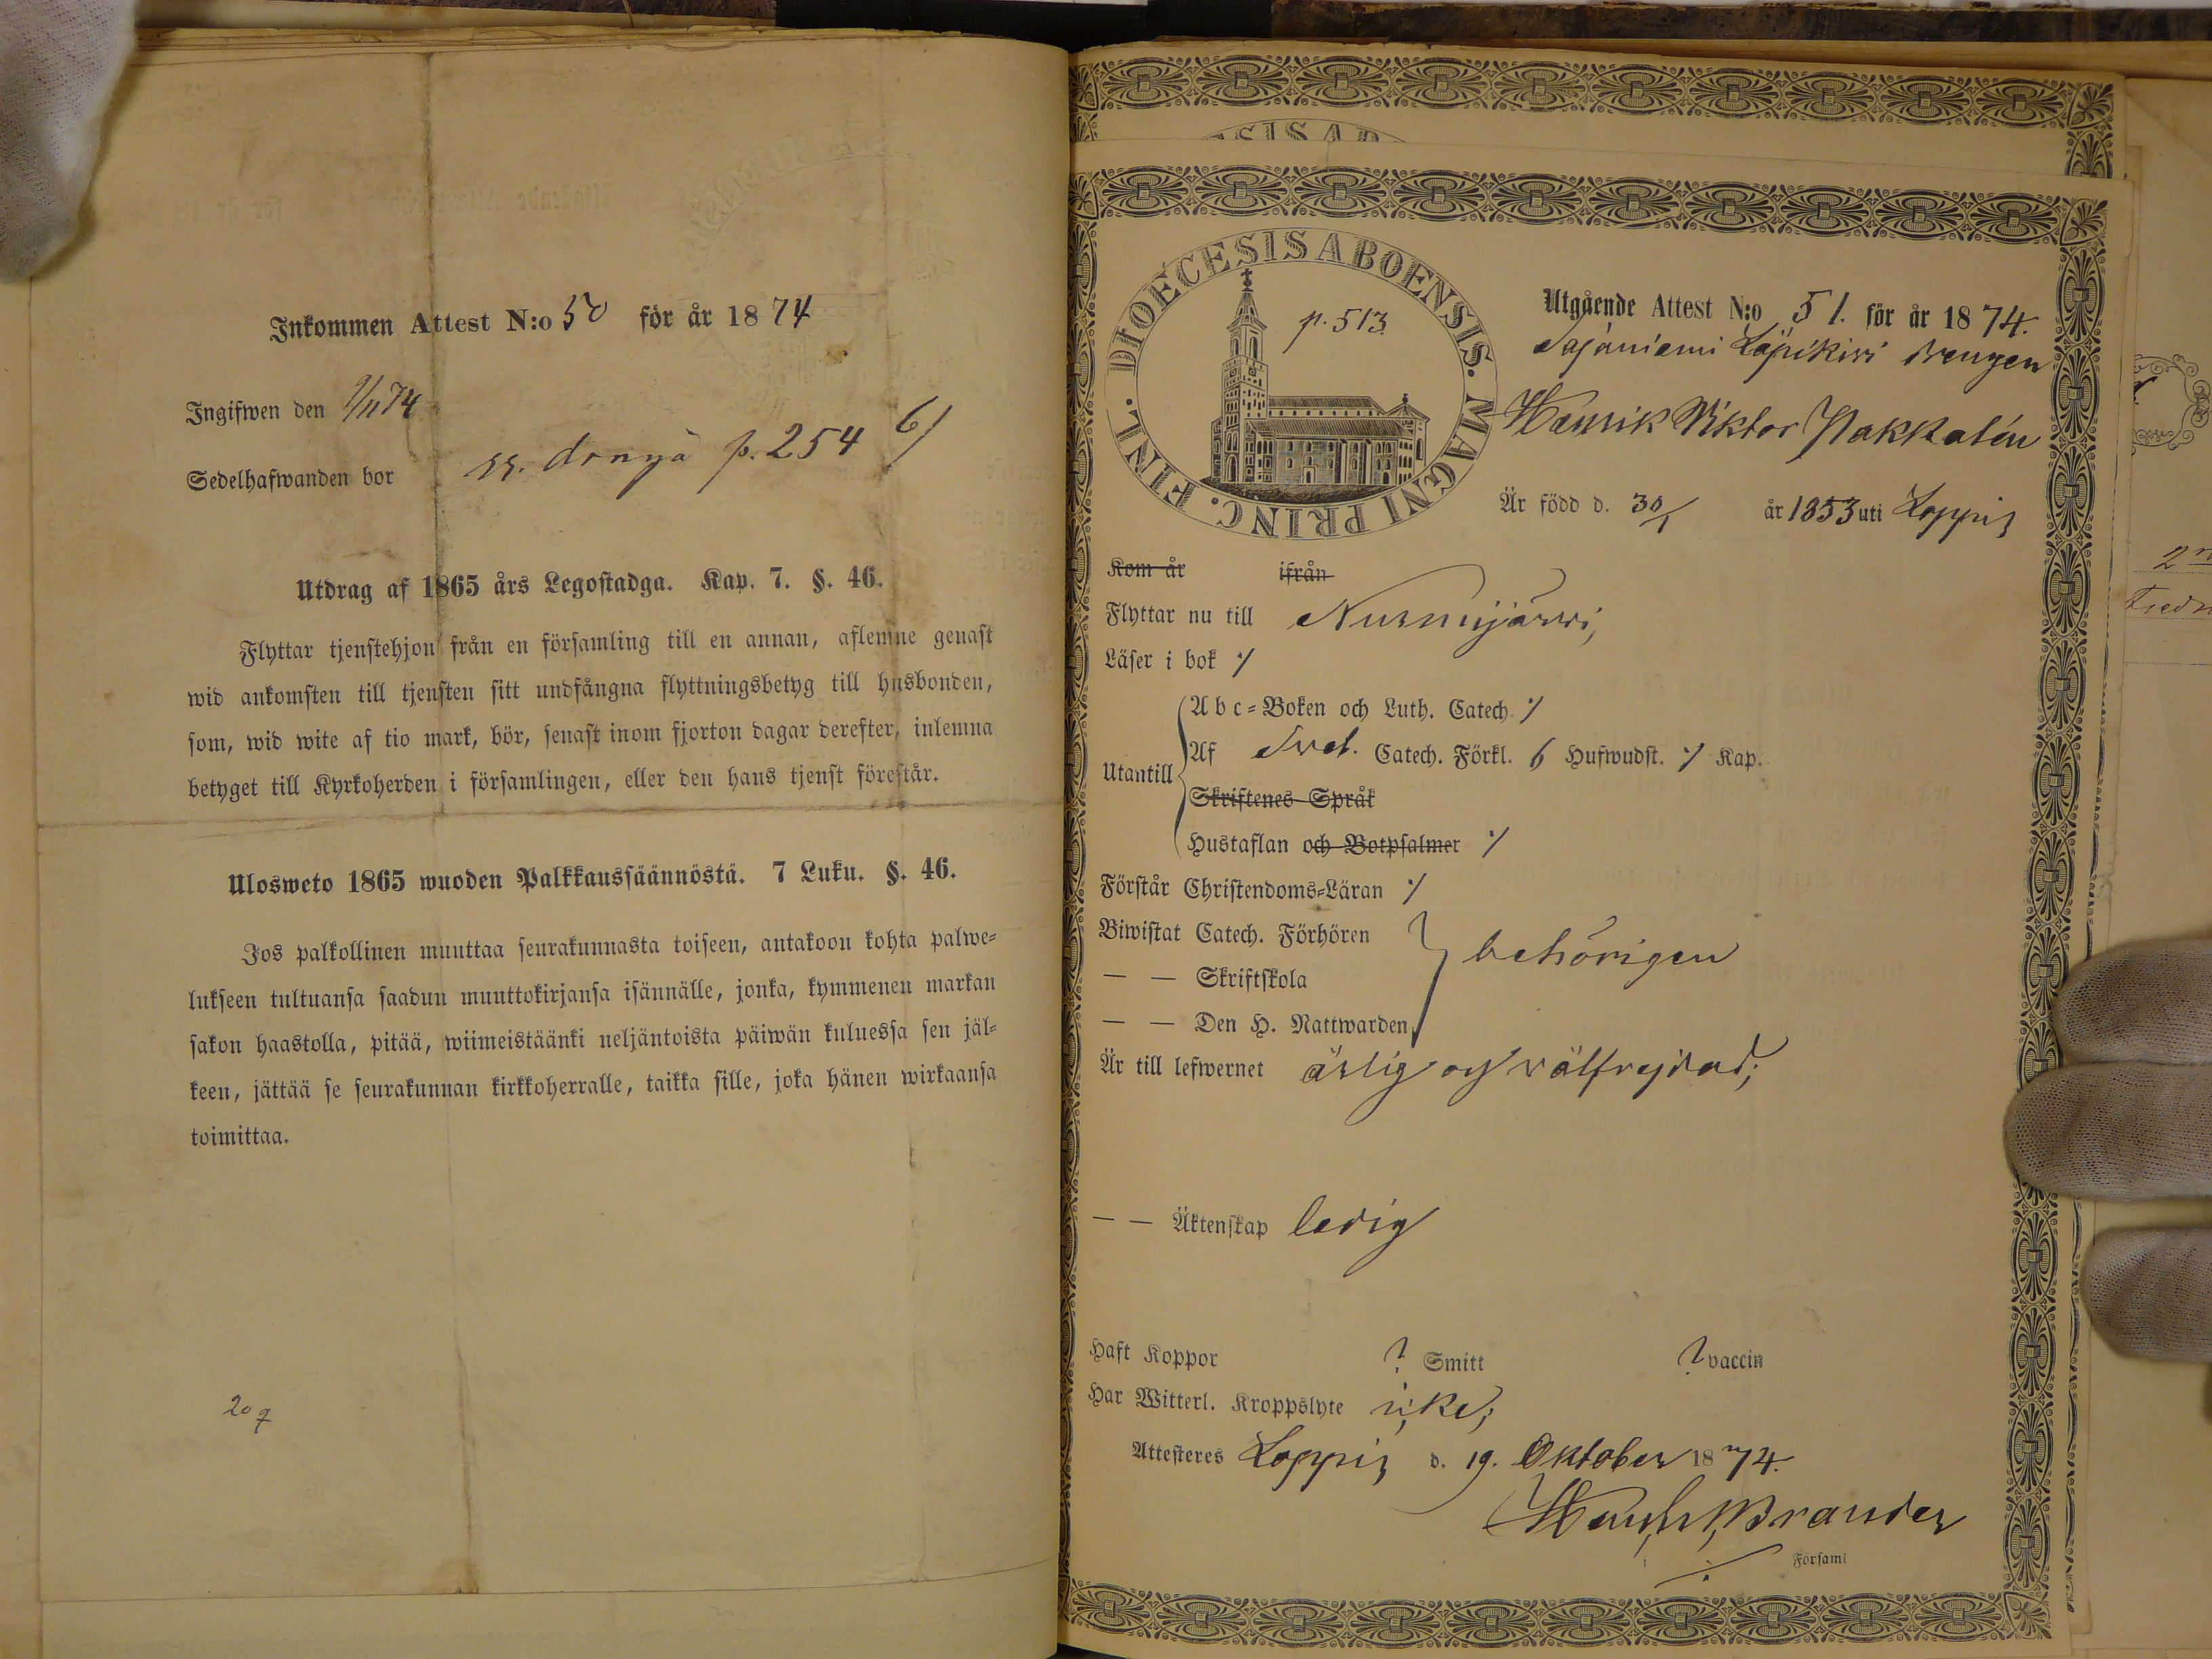 Inkommen Attest N:o 50 för år 1874
Ingifwen den 9/11 74
Sedelhafwanden bor p. 254 6/
Utdrag af 1865 års Legostadga. Kap. 7. §. 46.
Flyttar tjenstehjon från en församling till en annan, aflemne genast
wid ankomsten till tjensten sitt undfångna flyttningsbetyg till husbonden,
som, wid wite af tio mark, bör, senast inom fjorton dagar derefter, inlemna
betyget till Kyrkoherden i församlingen, eller den hans tjenst förestår.
Ulosweto 1865 wuoden Palkkaussäännöstä. 7 Luku. §. 46.
Jos palkollinen muuttaa seurakunnasta toiseen, antakoon kohta palwe=
lukseen tultuansa saadun muuttokirjansa isännälle, jonka, kymmenen markan
sakon haastolla, pitää, wiimeistäänki neljäntoista päiwän kuluessa sen jäl=
keen, jättää se seurakunnan kirkkoherralle, taikka sille, joka hänen wirkaansa
toimittaa.
DIOECESIS ABOENSIS. MAGNI PRINC. FINL.
p. 513.
Utgående Attest N:o 51. för år 1874.
Sajaniemi Läpikivi drengen
Henrik Viktor Pakkalén
Är född d. 30/1 år 1853 uti Loppis
Kom år ifrån
Flyttar nu till Nurmijärvi,
Läser i bok ⁒
Utantill
Abc=Boken och Luth. Catech. ⁒
Af Sved. Catech. Förkl. 6 Hufwudst. ⁒ Kap.
Skriftenes Språk
Hustaflan och Botpsalmer ⁒
Förstår Christendoms=Läran ⁒
Biwistat Catech. Förhören
— — Skriftskola behörigen
— — Den H. Nattwarden
Är till lefwernet ärlig och välfrejdad;
— — Äktenskap ledig
Haft Koppor ? Smitt ? vaccin
Har Witterl. Kroppslyte icke;
Attesteres Loppis d. 19. Oktober 1874.
Brander
Församl